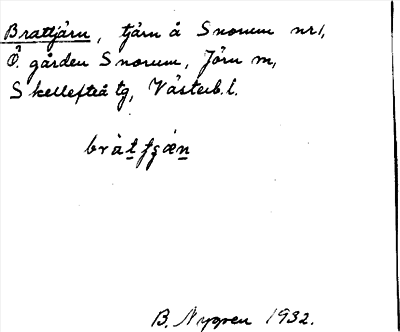 Brattjärn, tjärn å Snorum nr 1,
Ö. gården Snorum, Jörn sn,
Skellefteå tg, Västerb. l.
B. Nygren 1932.